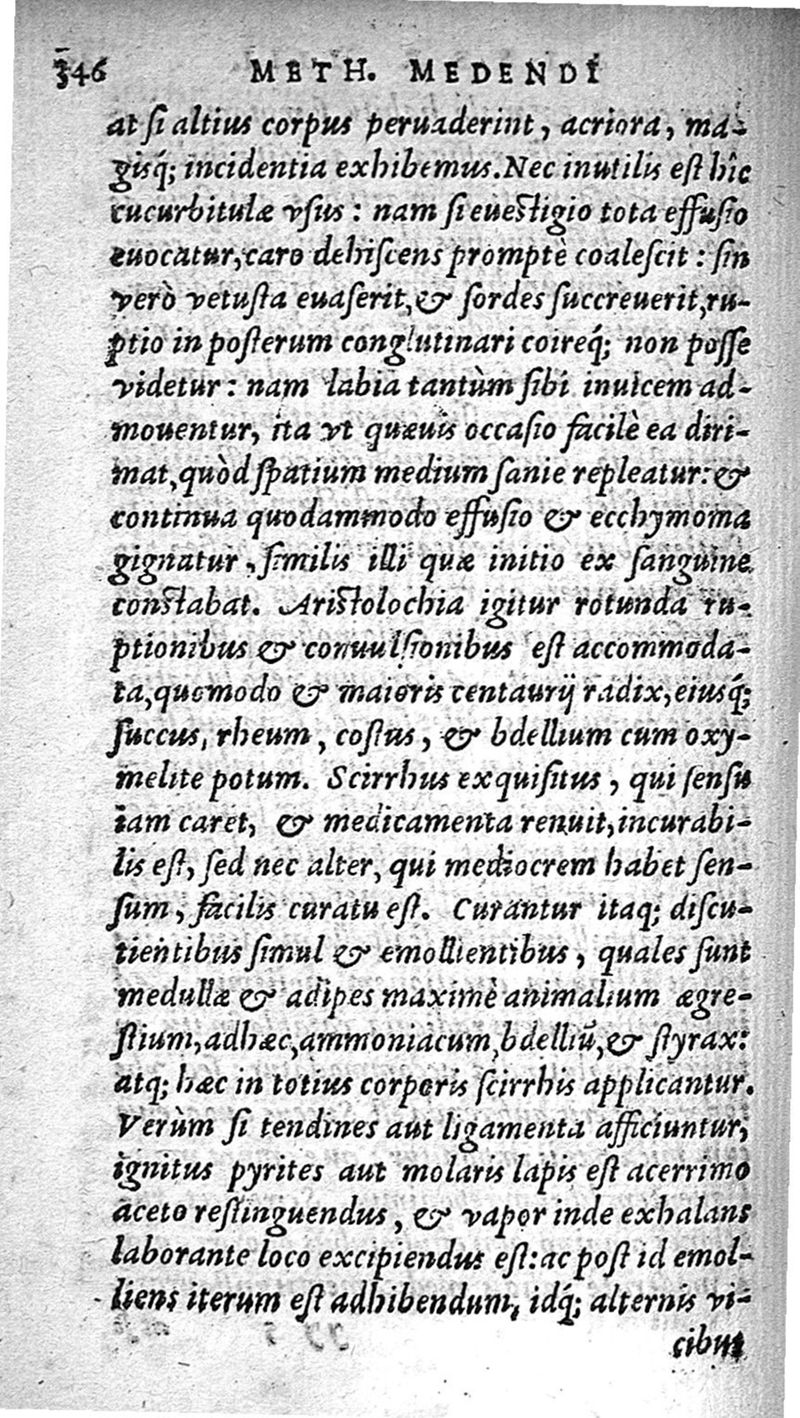 346 METH. MEDENDI
at ſi altius corpus peruaderint, acriora, ma-
gisq́; incidentia exhibemus. Nec inutilis eſt hîc
cucurbitulæ vſus: nam ſi eueſtigio tota effuſio
euocatur, caro dehiſcens promptè coaleſcit: ſin
verò vetuſta euaſerit, & ſordes ſuccreuerit, ru-
ptio in poſterum conglutinari coireq́; non poſſe
videtur: nam labia tantùm ſibi inuicem ad-
mouentur, ita vt quæuis occaſio facilè ea diri-
mat, quòd ſpatium medium ſanie repleatur: &
continua quodammodo effuſio & ecchymoma
gignatur, ſimilis illi quæ initio ex ſanguine
conſtabat. Ariſtolochia igitur rotunda ru-
ptionibus & conuulſionibus eſt accommoda-
ta, quomodo & maioris centaurij radix, eiusq́;
ſuccus, rheum, coſtus, & bdellium cum oxy-
melite potum. Scirrhus exquiſitus, qui ſenſu
iam caret, & medicamenta renuit, incurabi-
lis eſt, ſed nec alter, qui mediocrem habet ſen-
ſum, facilis curatu eſt. Curantur itaq; diſcu-
tientibus ſimul & emollientibus, quales ſunt
medullæ & adipes maximè animalium ægre-
ſtium, adhæc, ammoniacum, bdelliũ, & ſtyrax:
atq; hæc in totius corporis ſcirrhis applicantur.
Verùm ſi tendines aut ligamenta afficiuntur,
ignitus pyrites aut molaris lapis eſt acerrimo
aceto reſtinguendus, & vapor inde exhalans
laborante loco excipiendus eſt: ac poſt id emol-
liens iterum eſt adhibendum, idq́; alternis vi-
cibus